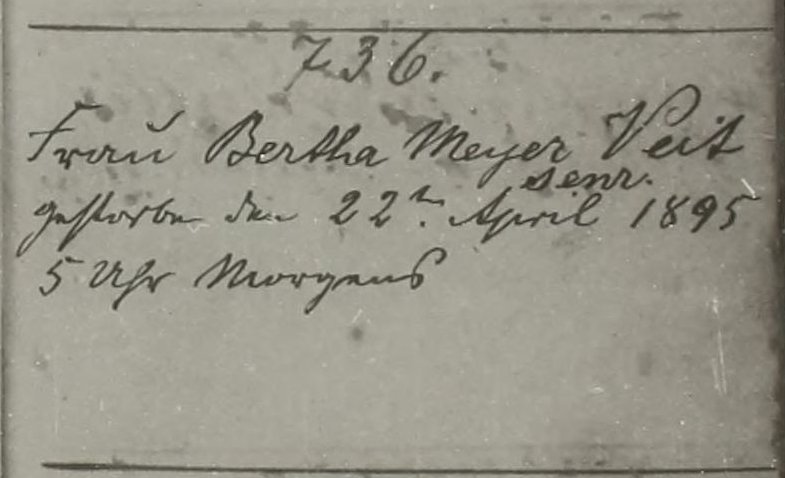 736.
Frau Bertha Meyer Veit
senr.
gestorben den 22ten April 1895
5 Uhr Morgens